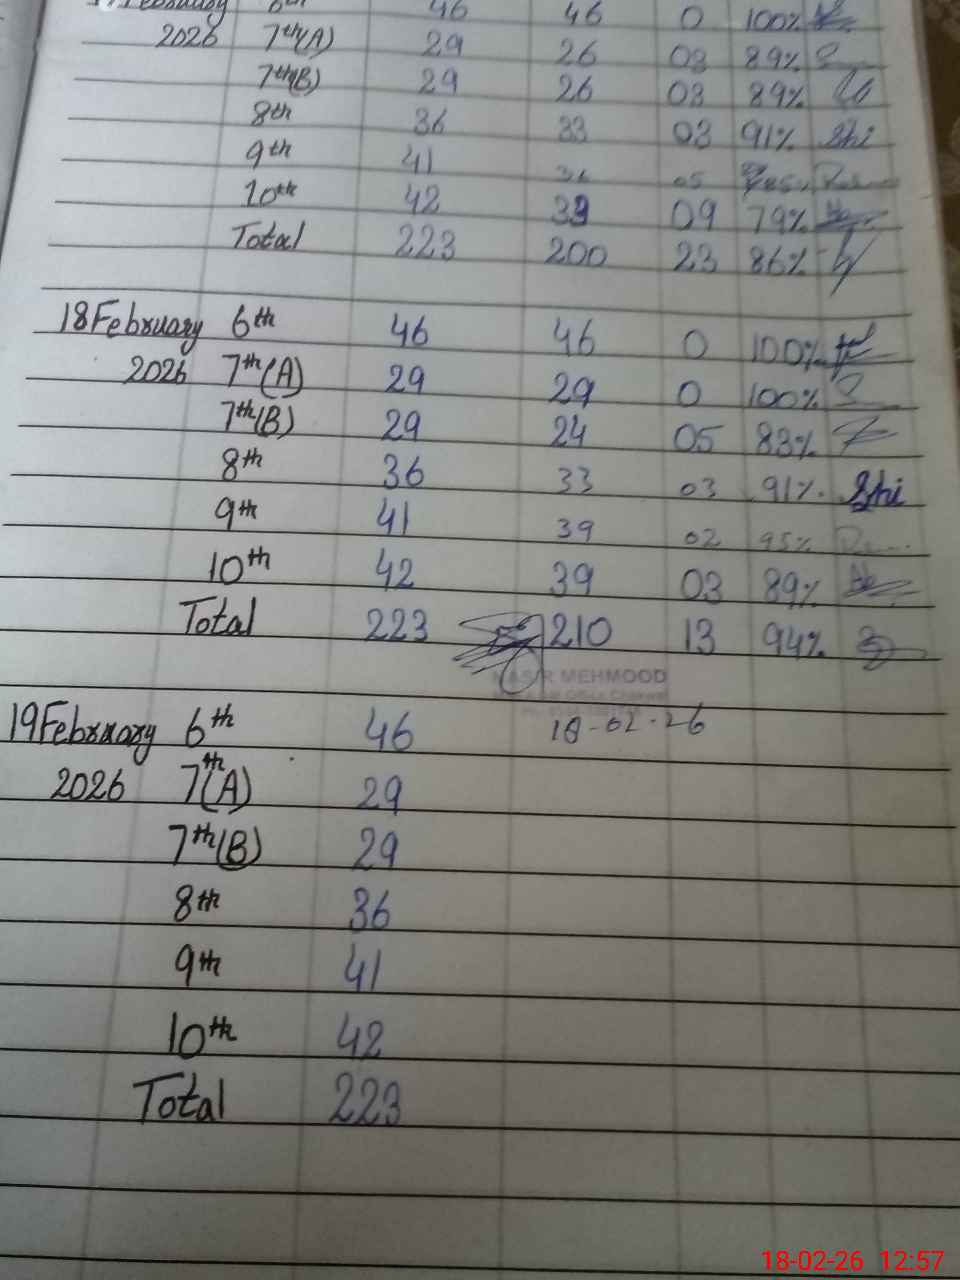 February 6th 46 46 0 100%
2026 7th(A) 29 26 03 89%
7th(B) 29 26 03 89%
8th 36 33 03 91% Shi
9th 41 05
10th 42 09 79%
Total 223 200 23 86%
18 February 6th 46 46 0 100%
2026 7th(A) 29 29 0 100%
7th(B) 29 24 05 83%
8th 36 33 03 91% Shi
9th 41 39 02 95%
10th 42 39 03 89%
Total 223 210 13 94%
NASIR MEHMOOD
18-02-26
19 February 6th 46
2026 7th(A) 29
7th(B) 29
8th 36
9th 41
10th 42
Total 223
18-02-26 12:57